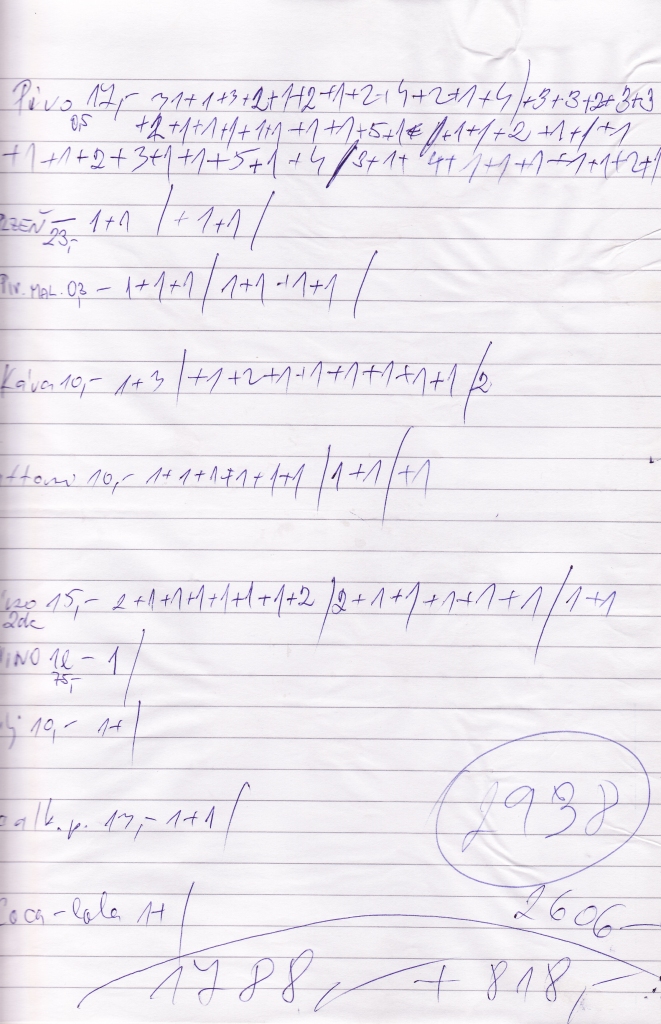 Pivo 17,- 31+1+3+2+1+2+1+2+4+2+1+4/+3+3+2+3+3
0,5 +2+1+1+1+1+1+1+1+5+1+/+1+1+2+1+1+1
+1+1+2+3+1+1+5+1+4/3+1+4+1+1+1+1+1+2+1
LZEŇ - 1+1 /+1+1/
23,-
Piv. MAL. 0,3 - 1+1+1/1+1+1+1 /
Káva 10,- 1+3/+1+2+1+1+1+1+1+1/2
ttoni 10,- 1+1+1+1+1+1/1+1/+1
15,- 2+1+1+1+1+1+1+2/2+1+1+1+1+1/1+1
2dc
INO 1l - 1/
75,-
j 10,- 1+/
alk. p. 13,- 1+1/
2938
Coca-Cola 1+/
2606-
1788,- + 818,-